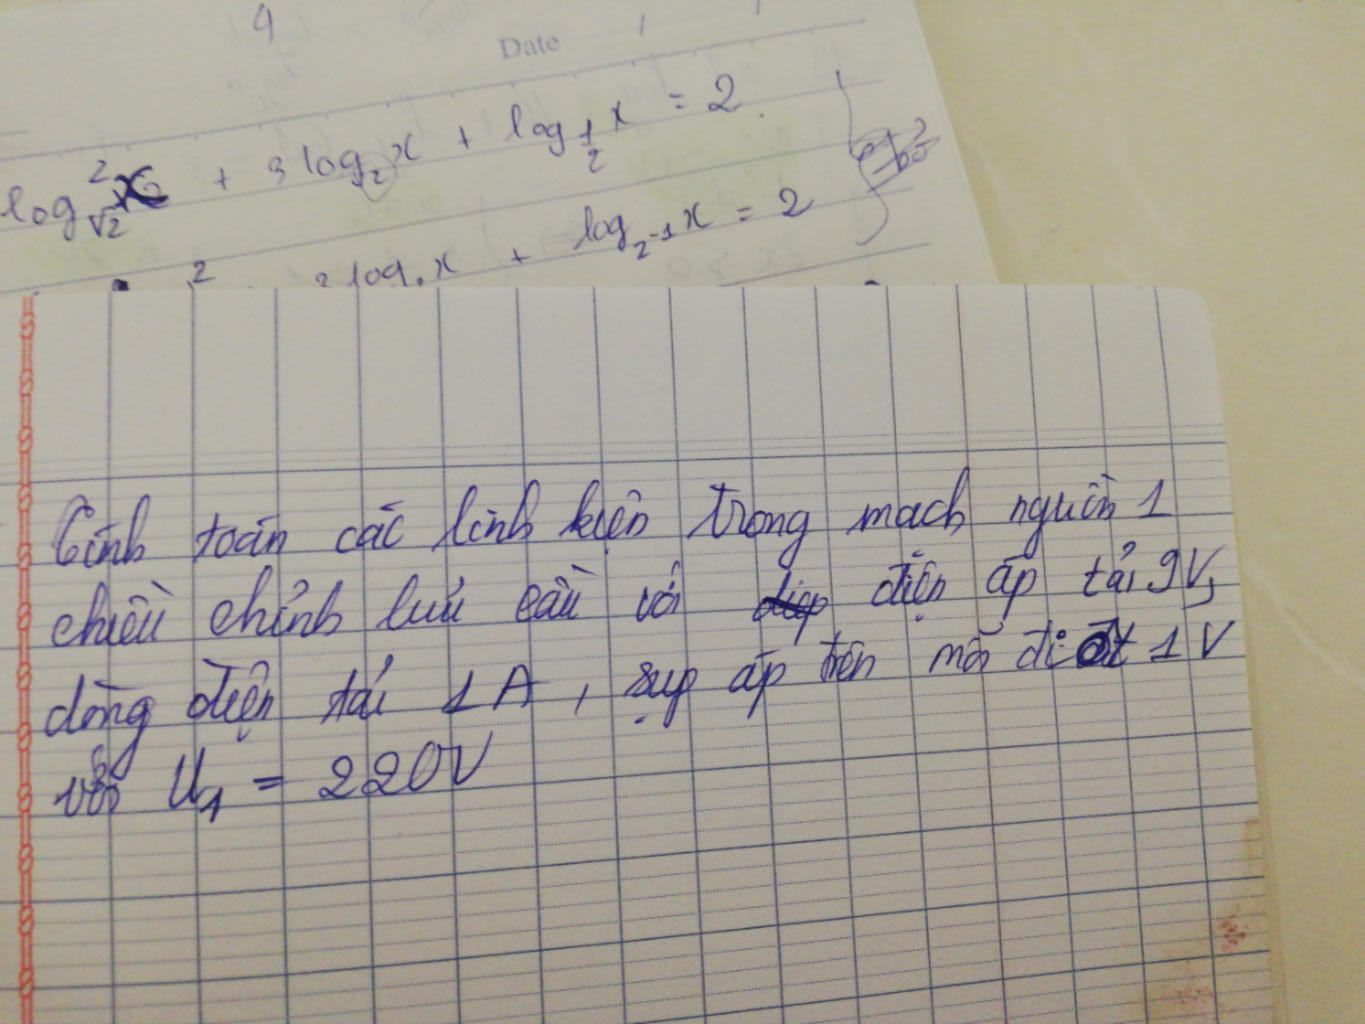 9
Date / /
log²√2 x + 3 log₂ x + log 1/2 x = 2
2 3 log₂ x + log₂-1 x = 2
Tính toán các linh kiện trong mạch nguồn 1
chiều chỉnh lưu cầu với điện áp tải 9V,
dòng điện tải 1A, sụp áp trên mỗi điôt 1V
với U₁ = 220V